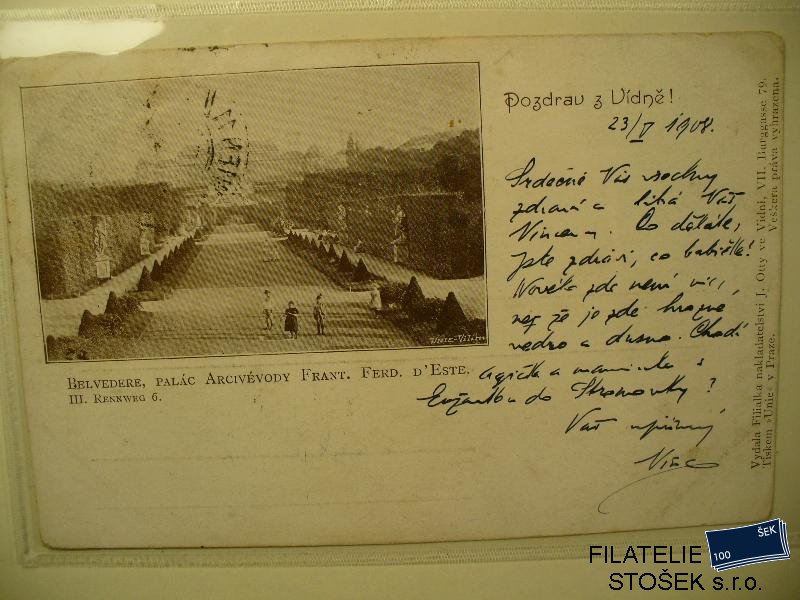 Pozdrav z Vídně!
23/V 1908.
Srdečně Vás všechny
zdraví a líbá Váš
Vincenc. Co děláte,
jste zdrávi, co babička?
Nového zde není nic,
než že je zde hrozné
vedro a dusno. Chodí
a maminka s
do Stromovky?
Váš upřímný
UNIE-VILÍM
BELVEDERE, PALÁC ARCIVÉVODY FRANT. FERD. D'ESTE.
III. RENNWEG 6.
Vydala Filiálka nakladatelství J. Otty ve Vídni, VII. Burggasse 79.
Tiskem »Unie« v Praze. Veškerá práva vyhrazena.
FILATELIE
STOŠEK s.r.o.
100
ŠEK